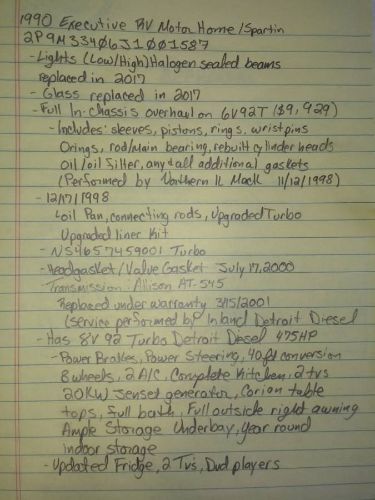 1990 Executive RV Motor Home/Spartin
2P9M33406J1001587
- Lights (Low/High) Halogen sealed beams
replaced in 2017
- Glass replaced in 2017
- Full In-chassis overhaul on 6V92T ($9,929)
- Includes: sleeves, pistons, rings, wristpins
Orings, rod/main bearing, rebuilt cylinder heads
Oil/oil filter, any & all additional gaskets
(Performed by Northern IL Mack 11/12/1998)
- 12/17/1998
Oil Pan, connecting rods, Upgraded Turbo
Upgraded liner Kit
- NS4657459001 Turbo
- Headgasket/Valve Gasket July 17, 2000
- Transmission: Allison AT-545
Replaced under warranty 3/15/2001
(service performed by Inland Detroit Diesel
- Has 8V92 Turbo Detroit Diesel 475HP
- Power Brakes, Power Steering, 40ft conversion
8 wheels, 2 A/C, Complete Kitchen, 2 tvs
20KW Jenset generator, Corian table
tops, full bath, Full outside right awning
Ample Storage Underbay, year round
indoor storage
- Updated Fridge, 2 Tv's, Dvd players